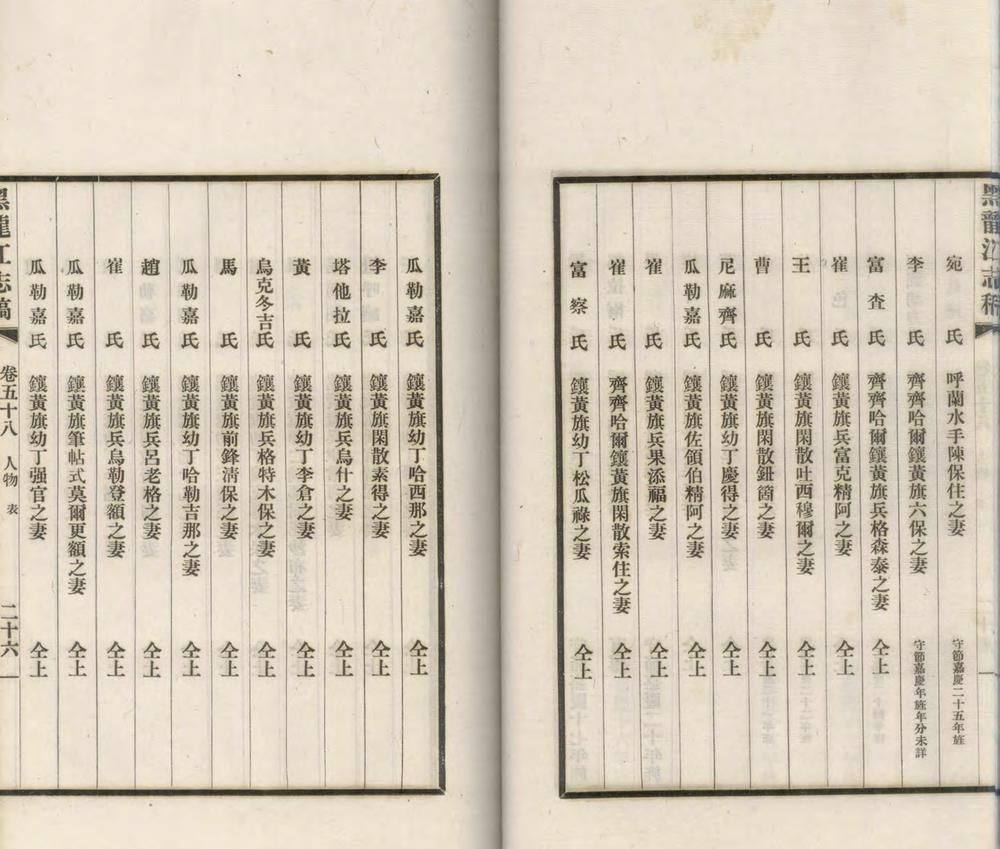 黑龍江志稿
宛氏 呼蘭水手陳保住之妻 守節嘉慶二十五年旌
李氏 齊齊哈爾鑲黃旗六保之妻 守節嘉慶年旌年分未詳
富查氏 齊齊哈爾鑲黃旗兵格森泰之妻 仝上
崔氏 鑲黃旗兵富克精阿之妻 仝上
王氏 鑲黃旗閑散吐西穆爾之妻 仝上
曹氏 鑲黃旗閑散鈕箇之妻 仝上
尼麻齊氏 鑲黃旗幼丁慶得之妻 仝上
瓜勒嘉氏 鑲黃旗佐領伯精阿之妻 仝上
崔氏 鑲黃旗兵果添福之妻 仝上
崔氏 齊齊哈爾鑲黃旗閑散索住之妻 仝上
富察氏 鑲黃旗幼丁松瓜祿之妻 仝上
瓜勒嘉氏 鑲黃旗幼丁哈西那之妻 仝上
李氏 鑲黃旗閑散素得之妻 仝上
塔他拉氏 鑲黃旗兵烏什之妻 仝上
黃氏 鑲黃旗幼丁李倉之妻 仝上
烏克冬吉氏 鑲黃旗兵格特木保之妻 仝上
馬氏 鑲黃旗前鋒淸保之妻 仝上
瓜勒嘉氏 鑲黃旗幼丁哈勒吉那之妻 仝上
趙氏 鑲黃旗兵呂老格之妻 仝上
崔氏 鑲黃旗兵烏勒登額之妻 仝上
瓜勒嘉氏 鑲黃旗筆帖式莫爾更額之妻 仝上
瓜勒嘉氏 鑲黃旗幼丁强官之妻 仝上
黑龍江志稿 卷五十八 人物 表 二十六